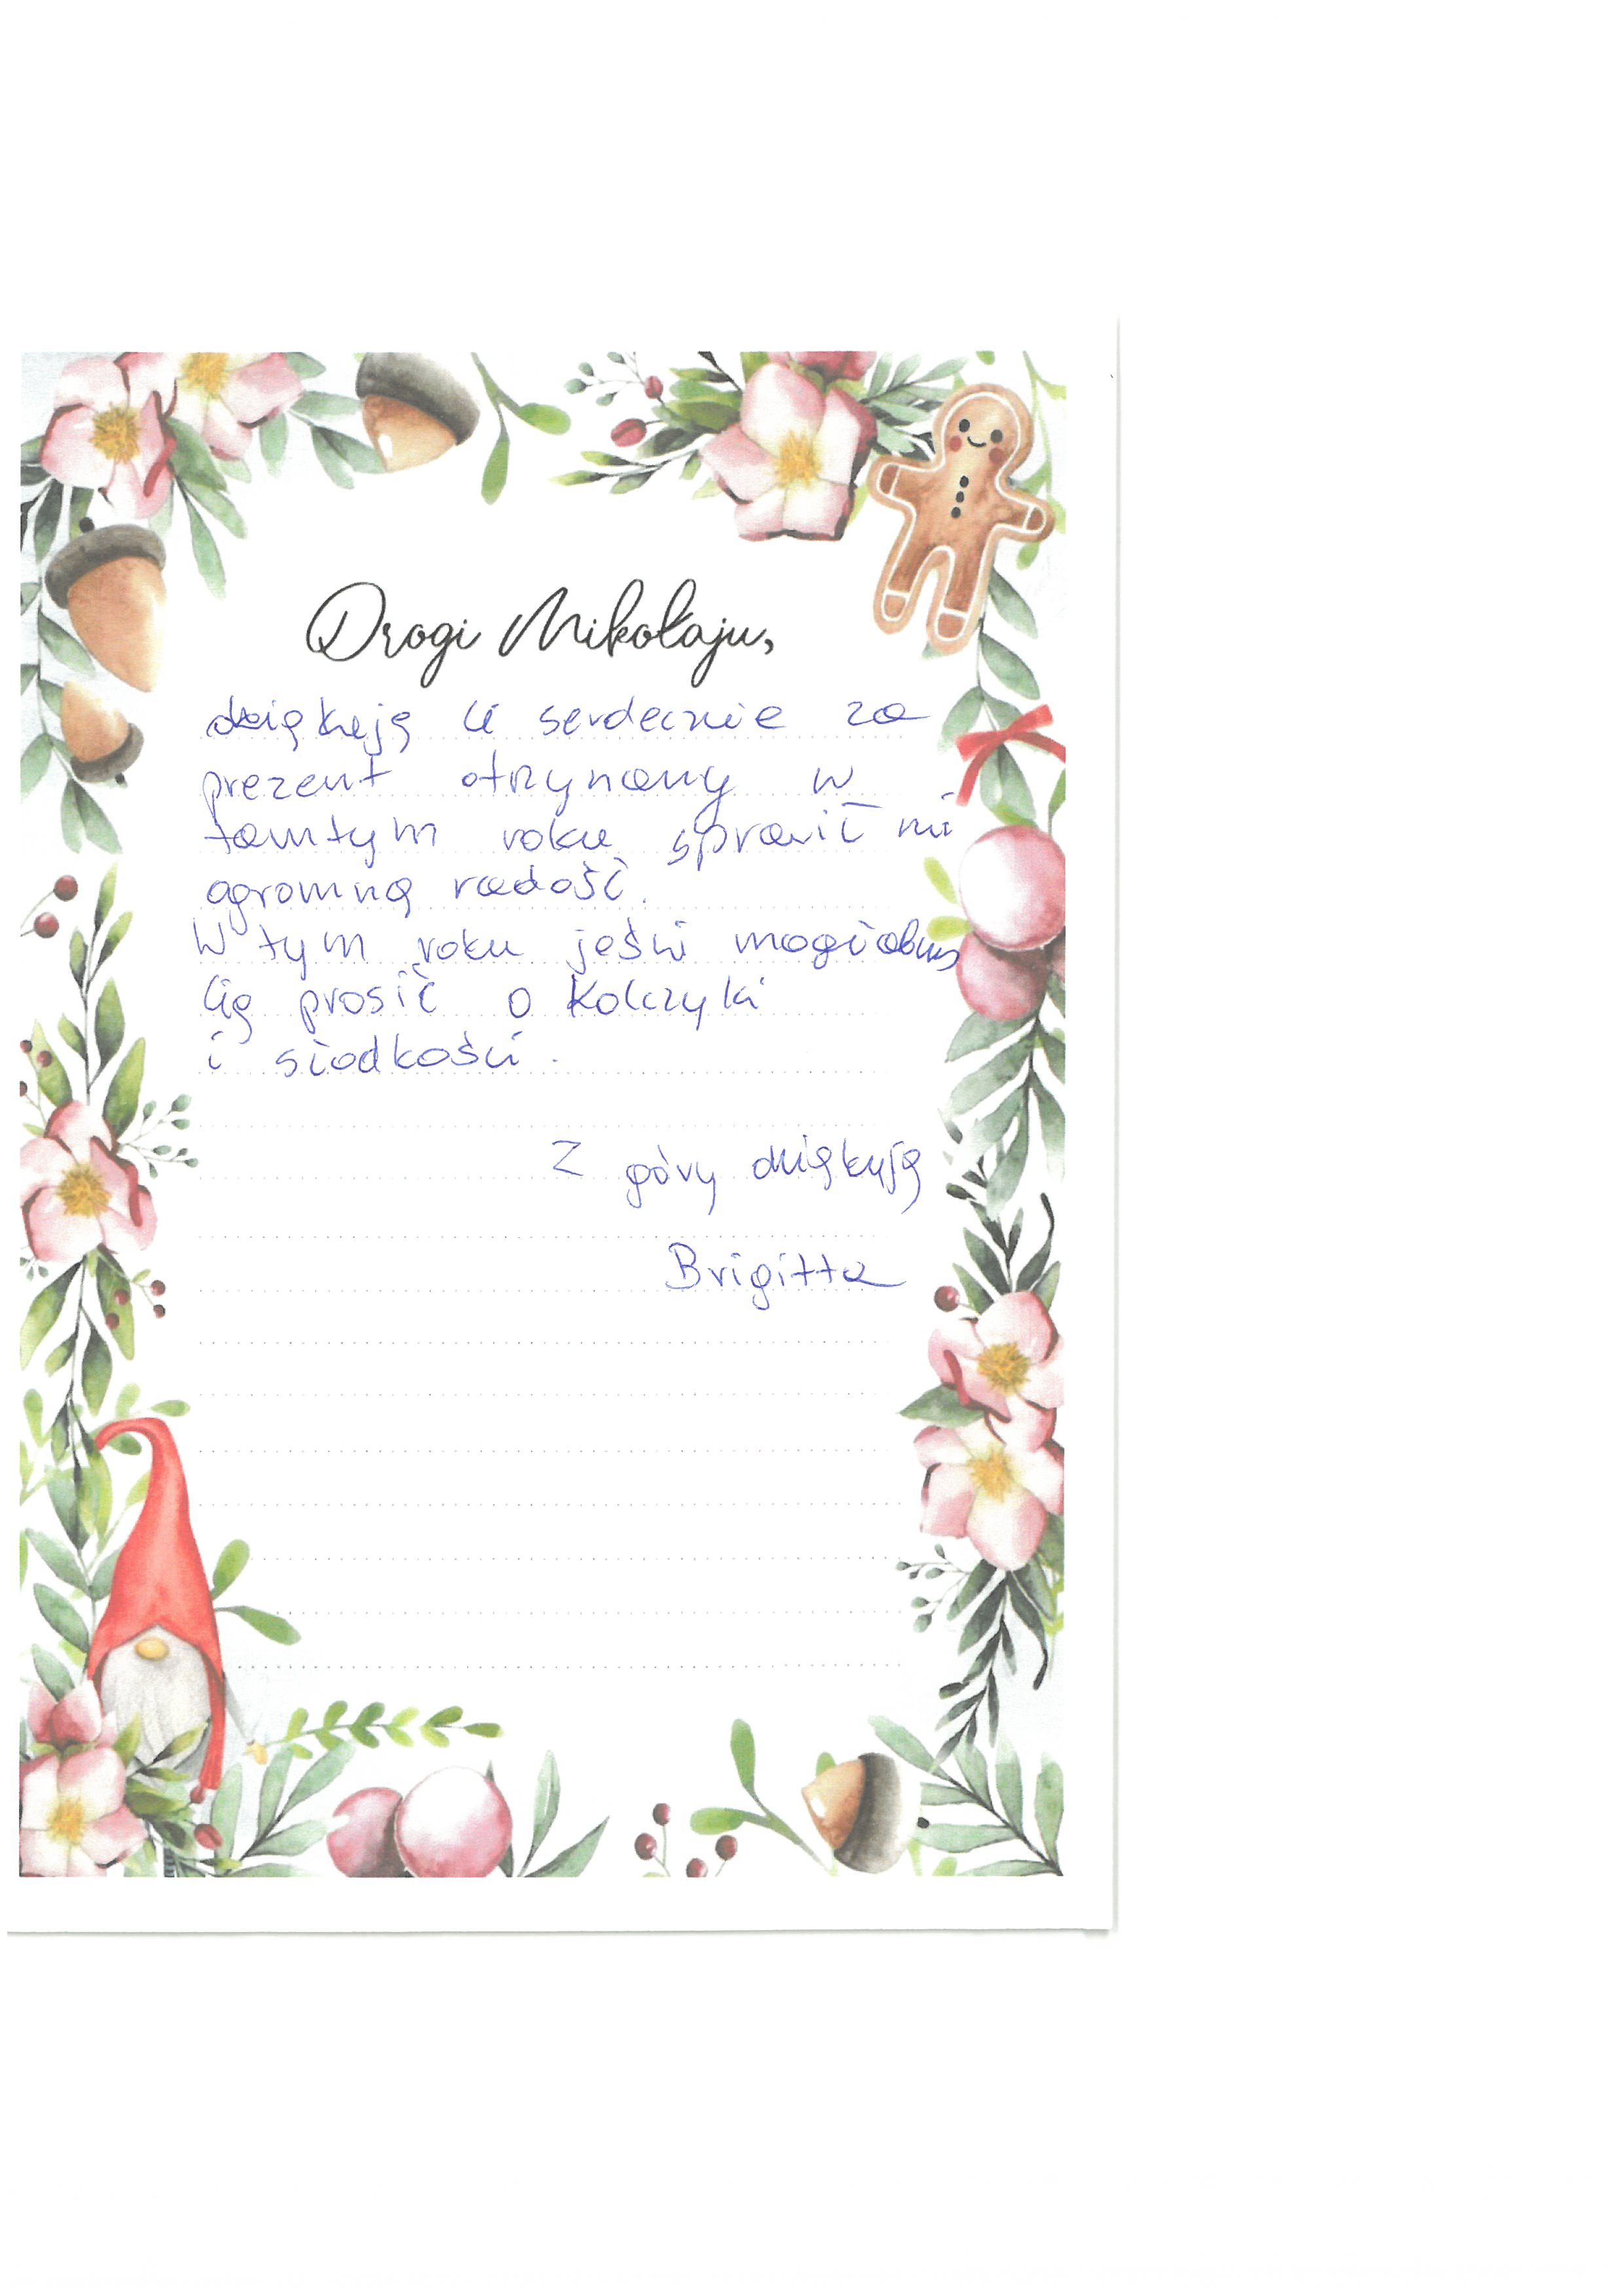 Drogi Mikołaju,
dziękuję Ci serdecznie za
prezent otrzymany w
tamtym roku sprawił mi
ogromną radość.
W tym roku jeśli mogłabym
Cię prosić o kolczyki
i słodkości.
Z góry dziękuję
Brigitta